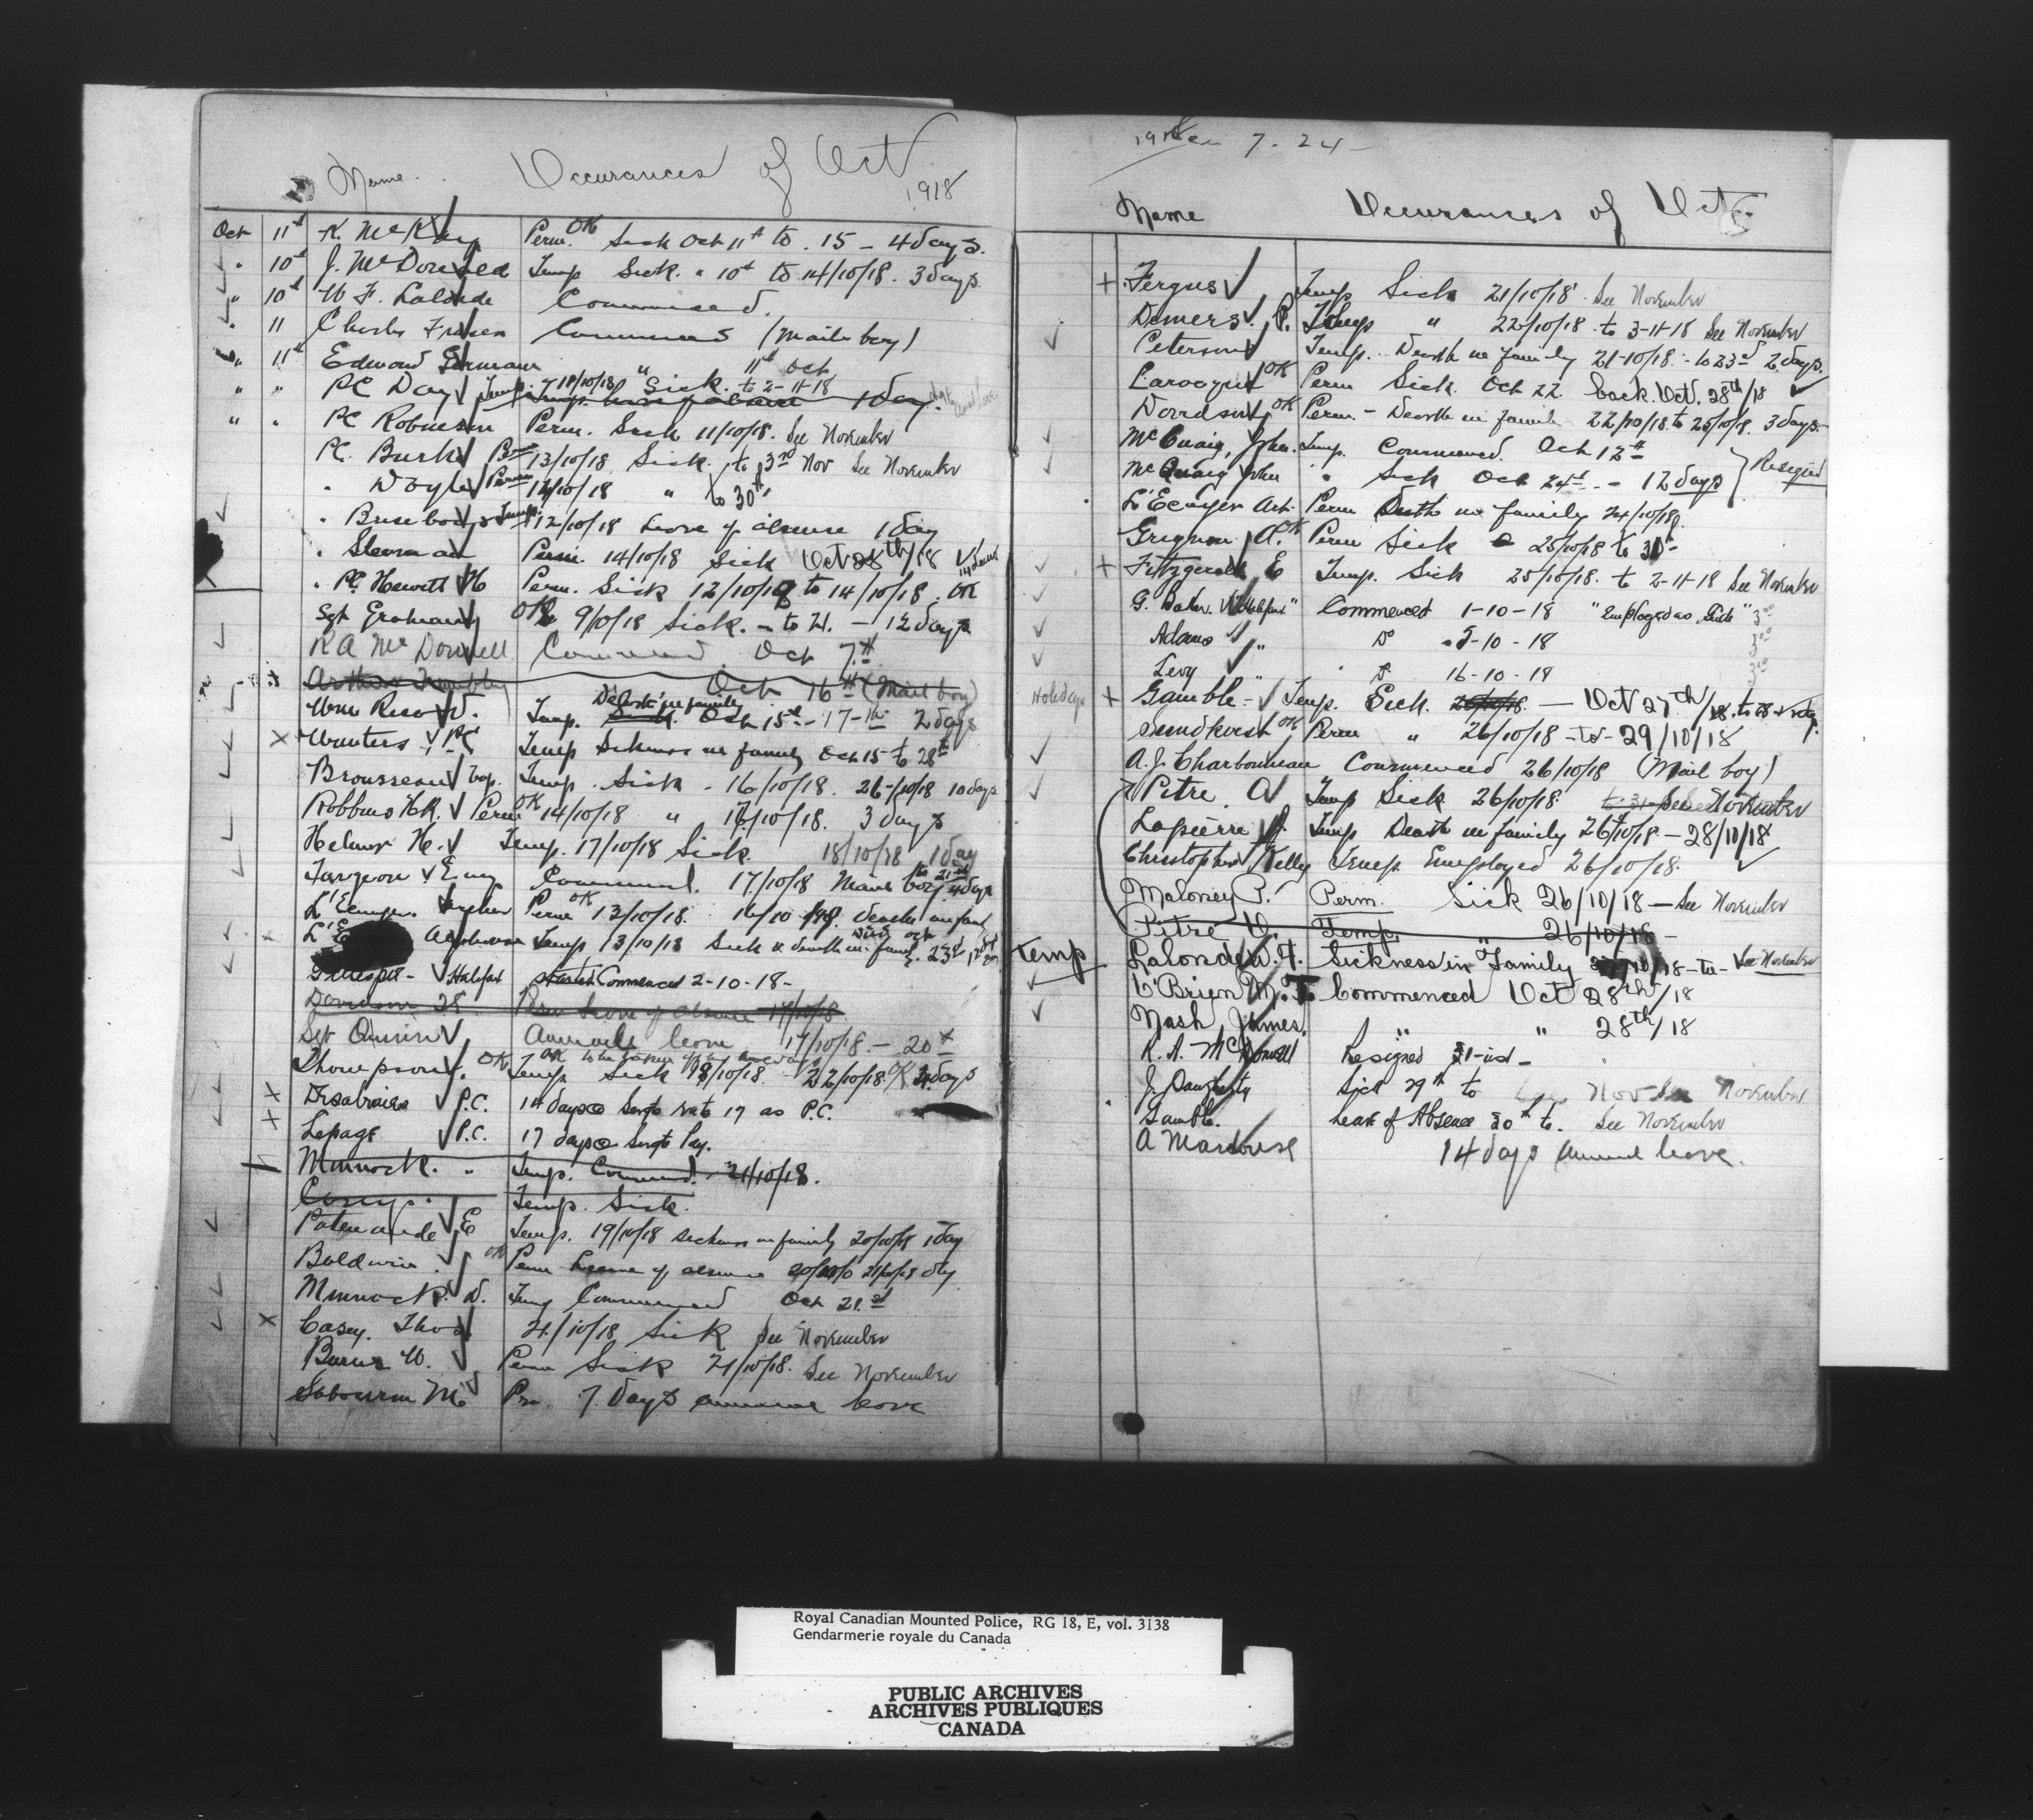 Name. Occurances of Oct 1918
Oct 11th K. McKay Perm. OK Sick Oct 11th to 15 - 4 days.
" 10th J. McDonald Temp Sick. " 10th to 14/10/18. 3 days.
" 10th W. F. Lalonde Commenced.
" 11 Charles Fraser Commenced (Mail boy)
" 11th Edmond Germain " 11th Oct
" " PC Day Temp. 11/10/18 Sick. to 2-11-18 1 day.
" " PC Robinson Perm. Sick 11/10/18. See November
PC. Burke Perm 13/10/18 Sick. to 3rd Nov See November
" Doyle Perm 12/10/18 " to 30th
" Brisebois Temp 12/10/18 Leave of absence 1 day
" Perm. 14/10/18 Sick Oct 28th/18
" PC. Hewitt H Perm. Sick 12/10/18 to 14/10/18. OK
Sgt Graham OK 9/10/18 Sick. - to 21. - 12 days
R A McDonell Commenced Oct 7th
Arthur Trembley Oct 16th (Mail boy)
Wm Temp. Death in family Sick. Oct 15th - 17th 2 days
Wouters PC Temp Sickness in family Oct 15 to 28th
Brousseau Temp. Sick - 16/10/18. 26/10/18 10 days
Robbins H.R. Perm OK 14/10/18 " 17/10/18. 3 days
Helmer H. Temp. 17/10/18 Sick. 18/10/18 1 day
Turgeon Commenced. 17/10/18 Mail boy. to 21st 4 days
L'Ecuyer. Arthur Perm OK 13/10/18. 16/10/18 death in family
L'E Alphonse Temp 13/10/18 Sick & death in family
Gillespie - Halifax started Commenced 2-10-18 -
Davidson Perm Leave of absence 17/10/18.
Sgt Quinn Annual leave 17/10/18. - 20th
Thompson J. OK Temp Sick 18/10/18. 22/10/18. OK days
Desabrais P.C. 14 days @ Sergts rate 17 as P.C.
Lepage P.C. 17 days @ Sergts Pay.
Minnock. " Temp. Commenced. 21/10/18.
Casey. Temp. Sick.
Patenaude E Temp. 19/10/18 sickness in family 20/10/18 1 day
Baldwin. OK Perm Leave of absence 21/10/18 day
Minnock. D. Temp Commenced Oct 21st
Casey. Thos 21/10/18 Sick See November
Burns W. Perm Sick 21/10/18. See November
Sabourin M. 7 Days annual leave
7. 24 -
Name Occurances of Oct.
+ Fergus Temp Sick 21/10/18. See November
Demers. P. Temp " 22/10/18 to 3-11-18 See November
Peterson Temp. Death in family 21-10/18 - to 23rd 2 days.
Larocque OK Perm Sick. Oct 22. back Oct. 28th/18
Davidson OK Perm - Death in family 22/10/18 to 25/10/18. 3 days.
McCuaig, John. Temp. Commenced Oct 12th
McCuaig John " Sick Oct 24th - - 12 days } Resigned
L'Ecuyer Art. Perm Death in family 24/10/18.
Grignon A. OK Perm Sick 25/10/18 to 30th
+ Fitzgerald E Temp. Sick 25/10/18. to 2-11-18 See November
G. Baker "Halifax" Commenced 1-10-18 "Employed as Guide" 3.00
Adams " Do 5-10-18 3.00
Levy " Do 16-10-18 3.00
Holidays + Gamble - Temp. Sick. 26/10/18. - Oct 27th/18. to 28
Sundkvist OK Perm " 26/10/18 - to - 29/10/18
A. J. Charbonneau Commenced 26/10/18 (Mail boy)
Pitre. O Temp Sick 26/10/18 to 31 See November
Lapierre J. Temp Death in family 26/10/18 - 28/10/18
Christopher Kelly Temp. Employed 26/10/18.
Maloney P. Perm. Sick 26/10/18 - See November
Pitre O. Temp. " 26/10/18 -
Temp Lalonde W. F. Sickness in Family /10/18 - to - See November
O'Brien M. J. Commenced Oct 28th/18
Nash, James. " " 28th/18
R. A. McDonell Resigned 31-inst -
J. Daugherty Sick 29th to Nov See November
Gamble. Leave of Absence 30th to. See November
A 14 days annual leave.
Royal Canadian Mounted Police, RG 18, E, vol. 3138
Gendarmerie royale du Canada
PUBLIC ARCHIVES
ARCHIVES PUBLIQUES
CANADA